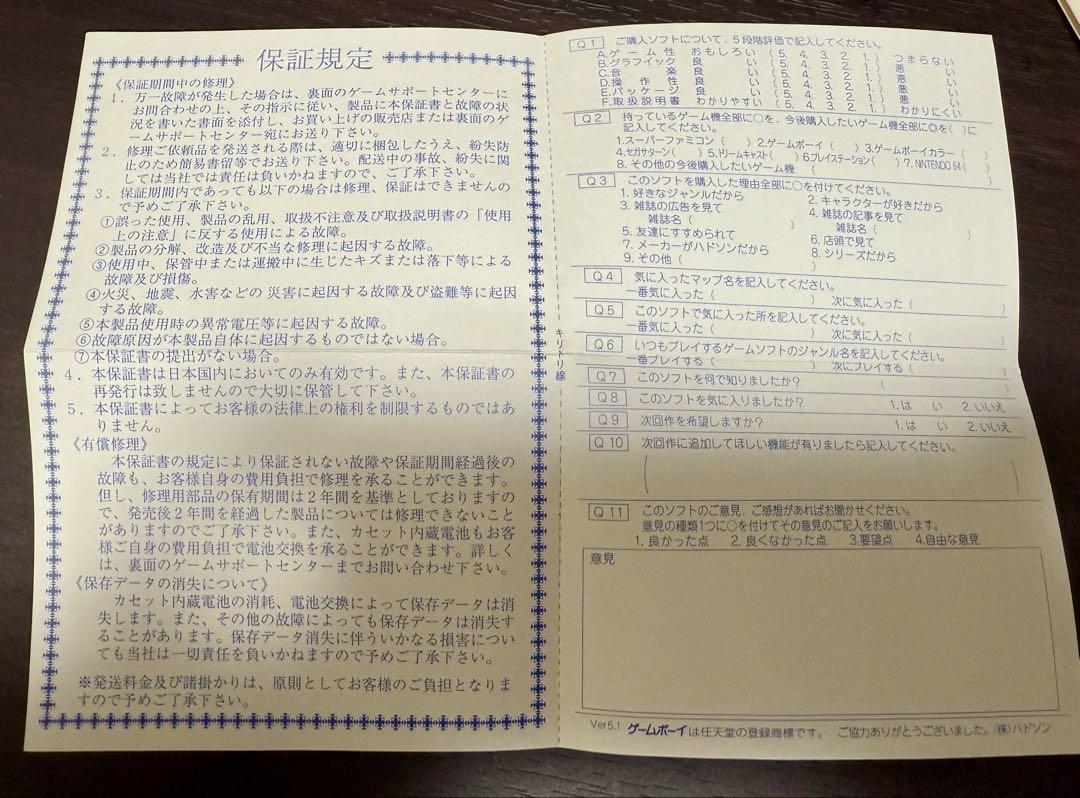 保証規定
《保証期間中の修理》
1．万一故障が発生した場合は、裏面のゲームサポートセンターに
お問合わせの上、その指示に従い、製品に本保証書と故障の状
況を書いた書面を添付し、お買い上げの販売店または裏面のゲ
ームサポートセンター宛にお送り下さい。
2．修理ご依頼品を発送される際は、適切に梱包したうえ、紛失防
止のため簡易書留等でお送り下さい。配送中の事故、紛失に関
しては当社では責任は負いかねますので、ご了承下さい。
3．保証期間内であっても以下の場合は修理、保証はできませんの
で予めご了承下さい。
①誤った使用、製品の乱用、取扱不注意及び取扱説明書の「使用
上の注意」に反する使用による故障。
②製品の分解、改造及び不当な修理に起因する故障。
③使用中、保管中または運搬中に生じたキズまたは落下等による
故障及び損傷。
④火災、地震、水害などの 災害に起因する故障及び盗難等に起因
する故障。
⑤本製品使用時の異常電圧等に起因する故障。
⑥故障原因が本製品自体に起因するものではない場合。
⑦本保証書の提出がない場合。
4．本保証書は日本国内においてのみ有効です。また、本保証書の
再発行は致しませんので大切に保管して下さい。
5．本保証書によってお客様の法律上の権利を制限するものではあ
りません。
《有償修理》
本保証書の規定により保証されない故障や保証期間経過後の
故障も、お客様自身の費用負担で修理を承ることができます。
但し、修理用部品の保有期間は2年間を基準としておりますの
で、発売後2年間を経過した製品については修理できないこと
がありますのでご了承下さい。また、カセット内蔵電池もお客
様ご自身の費用負担で電池交換を承ることができます。詳しく
は、裏面のゲームサポートセンターまでお問い合わせ下さい。
《保存データの消失について》
カセット内蔵電池の消耗、電池交換によって保存データは消
失します。また、その他の故障によっても保存データは消失す
ることがあります。保存データ消失に伴ういかなる損害につい
ても当社は一切責任を負いかねますので予めご了承下さい。
※発送料金及び諸掛かりは、原則としてお客様のご負担となりま
すので予めご了承下さい。
キリトリ線
Q1 ご購入ソフトについて、5段階評価で記入してください。
A.ゲーム性 おもしろい (5. 4. 3. 2. 1.) つまらない
B.グラフィック 良い (5. 4. 3. 2. 1.) 悪い
C.音楽 良い (5. 4. 3. 2. 1.) 悪い
D.操作性 良い (5. 4. 3. 2. 1.) 悪い
E.パッケージ 良い (5. 4. 3. 2. 1.) 悪い
F.取扱説明書 わかりやすい (5. 4. 3. 2. 1.) わかりにくい
Q2 持っているゲーム機全部に○を、今後購入したいゲーム機全部に◎を( )に
記入してください。
1.スーパーファミコン( ) 2.ゲームボーイ( ) 3.ゲームボーイカラー( )
4.セガサターン( ) 5.ドリームキャスト( ) 6.プレイステーション( ) 7. NINTENDO 64( )
8. その他の今後購入したいゲーム機 ( )
Q3 このソフトを購入した理由全部に○を付けてください。
1. 好きなジャンルだから 2. キャラクターが好きだから
3. 雑誌の広告を見て 4. 雑誌の記事を見て
雑誌名 ( ) 雑誌名 ( )
5. 友達にすすめられて 6. 店頭で見て
7. メーカーがハドソンだから 8. シリーズだから
9. その他 ( )
Q4 気に入ったマップ名を記入してください。
一番気に入った ( ) 次に気に入った ( )
Q5 このソフトで気に入った所を記入してください。
一番気に入った ( ) 次に気に入った ( )
Q6 いつもプレイするゲームソフトのジャンル名を記入してください。
一番プレイする ( ) 次にプレイする ( )
Q7 このソフトを何で知りましたか? ( )
Q8 このソフトを気に入りましたか? 1.はい 2.いいえ
Q9 次回作を希望しますか? 1.はい 2.いいえ
Q10 次回作に追加してほしい機能が有りましたら記入してください。
( )
Q11 このソフトのご意見、ご感想があればお聞かせください。
意見の種類1つに○を付けてその意見のご記入をお願いします。
1. 良かった点 2. 良くなかった点 3.要望点 4.自由な意見
意見
Ver5.1 ゲームボーイは任天堂の登録商標です。 ご協力ありがとうございました。㈱ハドソン